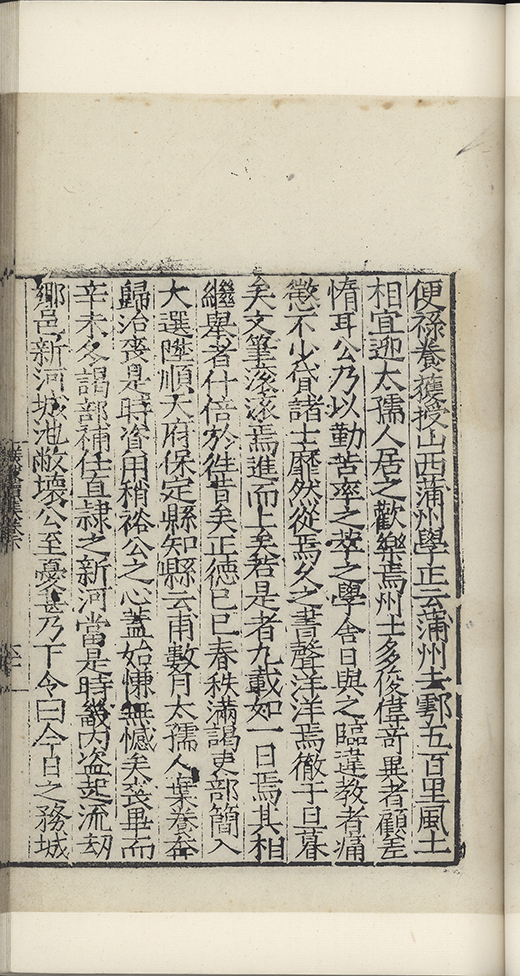 便祿養獲授山西蒲州學正云蒲州去鄠五百里風土
相宜迎太孺人居之歡樂焉州士多俊偉竒異者顧差
惰耳公乃以勤苦率之萃之學舍日與之臨違教者痛
懲不少貸諸士靡然從焉久之書聲洋洋焉徹于旦暮
矣文筆滚滚焉進而上矣若是者九載如一日焉其相
繼舉者什倍於往昔矣正德己巳春秩滿謁吏部簡入
大選陞順天府保定縣知縣云甫數月太孺人棄養奔
歸治喪是時資用稍裕公之心蓋始慊無憾矣喪畢而
辛未冬謁部補任直隷之新河當是時畿內盗起流劫
鄉邑新河城池敝壞公至憂甚乃下令曰今日之務城